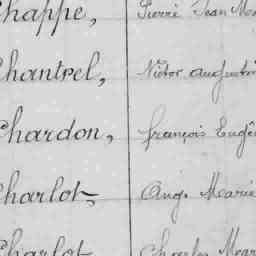 Chappe, Pierre Jean Mar
Chantrel, Victor Augustin
Chardon, François Eugèn
Charlot, Aug. Marie
Charlot Charles Mar